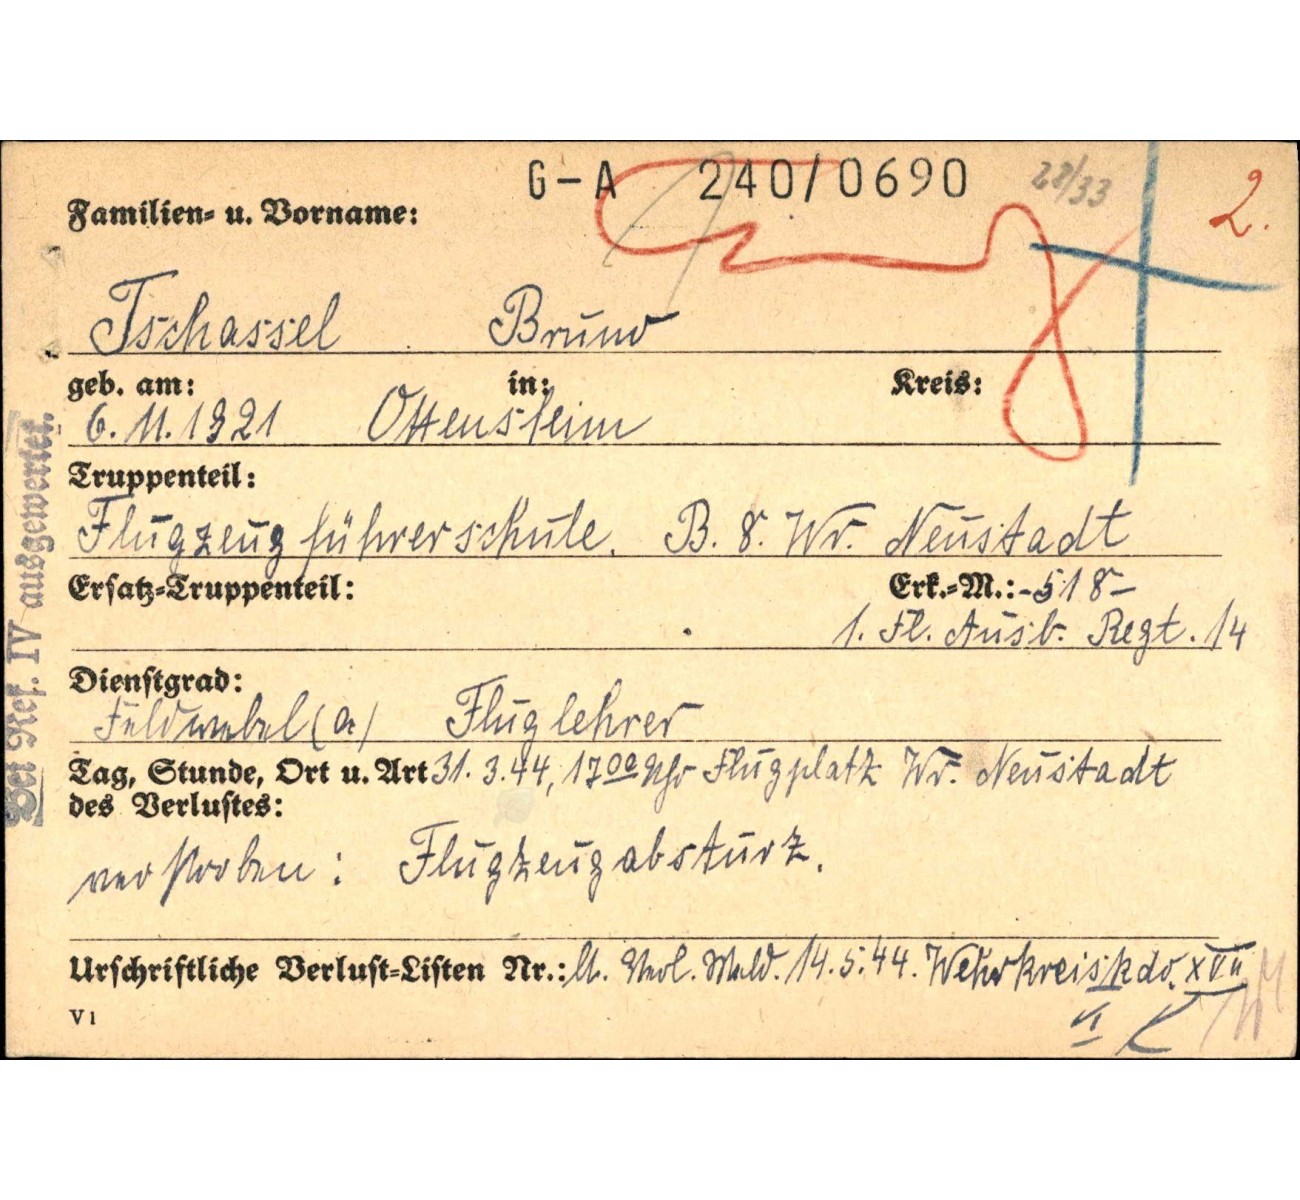 G-A 240/0690 28/33 2.
Familien- u. Vorname:
Tschassel Bruno
geb. am: in: Kreis:
6.11.1921 Ottensheim
Truppenteil:
Flugzeugführerschule. B. 8. Wr. Neustadt
Ersatz-Truppenteil: Erk.-M.: -518-
1. Fl. Ausb. Regt. 14
Dienstgrad:
Feldwebel (a) Fluglehrer
Tag, Stunde, Ort u. Art 31.3.44, 17⁰⁰ Uhr Flugplatz Wr. Neustadt
des Verlustes:
verstorben: Flugzeugabsturz.
Urschriftliche Verlust-Listen Nr.: lt. Verl. Meld. 14.5.44. Wehrkreiskdo. XVII
VI
V1
Bei Ref. IV ausgewertet.